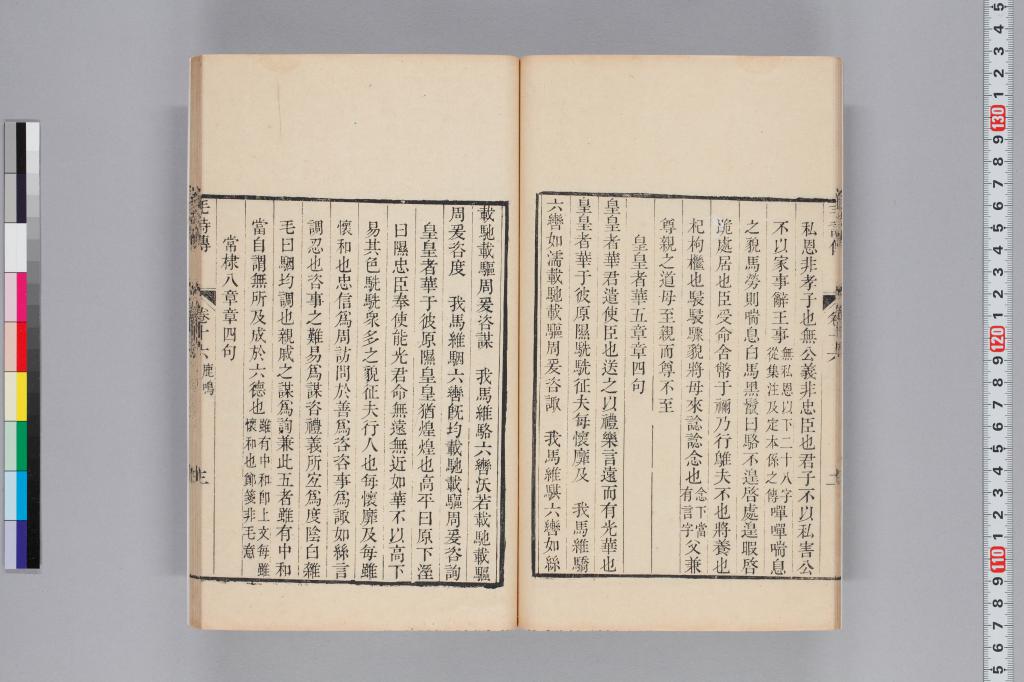 私恩非孝子也無公義非忠臣也君子不以私害公
不以家事辭王事無私恩以下二十八字從集注及定本係之傳嘽嘽喘息
之貌馬勞則喘息白馬黑鬣曰駱不遑啓處遑暇啓
跪處居也臣受命舍幣于禰乃行鵻夫不也將養也
杞枸檵也駸駸驟貌將母來諗諗念也念下當有言字父兼
尊親之道母至親而尊不至
皇皇者華五章章四句
皇皇者華君遣使臣也送之以禮樂言遠而有光華也
皇皇者華于彼原隰駪駪征夫每懷靡及　我馬維驕
六轡如濡載馳載驅周爰咨諏　我馬維騏六轡如絲
載馳載驅周爰咨謀　我馬維駱六轡沃若載馳載驅
周爰咨度　我馬維駰六轡旣均載馳載驅周爰咨詢
皇皇者華于彼原隰皇皇猶煌煌也高平曰原下溼
曰隰忠臣奉使能光君命無遠無近如華不以高下
易其色駪駪衆多之貌征夫行人也每懷靡及每雖
懷和也忠信爲周訪問於善爲咨咨事爲諏如絲言
調忍也咨事之難易爲謀咨禮義所宐爲度陰白雜
毛曰駰均調也親戚之謀爲詢兼此五者雖有中和
當自謂無所及成於六德也雖有中和卽上文每雖懷和也鄭箋非毛意
常棣八章章四句
毛詩傳
卷十六
鹿鳴